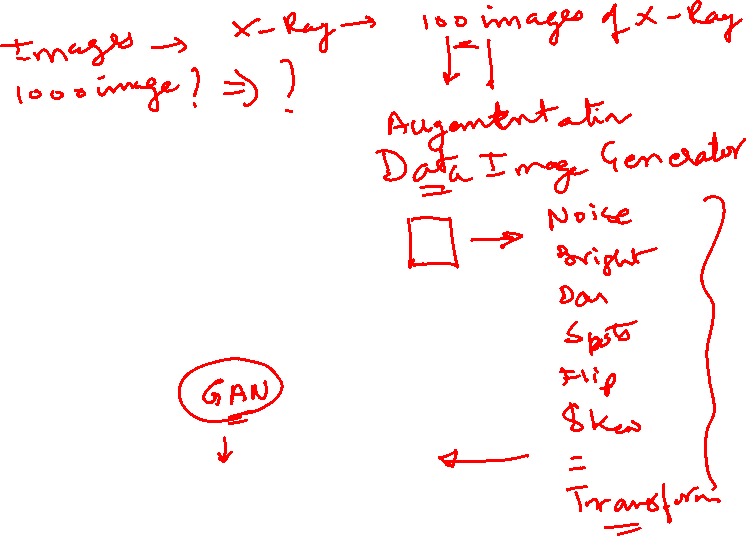 Images → X-Ray → 100 images of X-Ray
1000 image? ⇒ ?
Augmentatin
Data Image Generator
Noise
Bright
Dar
Spots
Flip
Skew
GAN
Transform